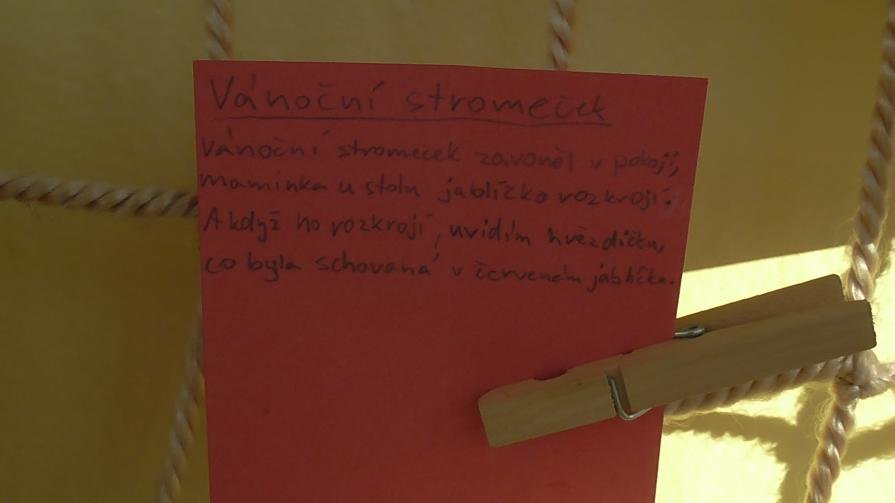 Vánoční stromeček
Vánoční stromeček zavoněl v pokoji,
maminka u stolu jablíčko rozkrojí.
A když ho rozkrojí, uvidím hvězdičku,
co byla schovaná v červeném jablíčku.